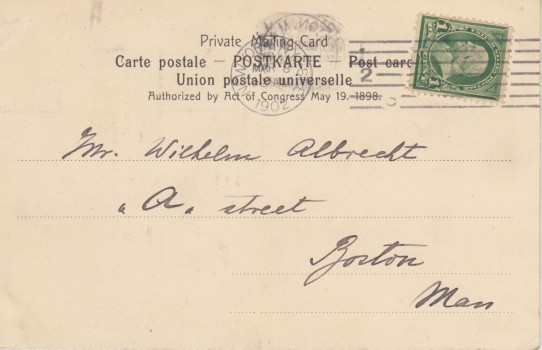 Private Mailing Card
Carte postale — POSTKARTE — Post card
Union postale universelle
Authorized by Act of Congress May 19. 1898.
1902
2
Mr. Wilhelm Albrecht
"A" street
Boston
Mass